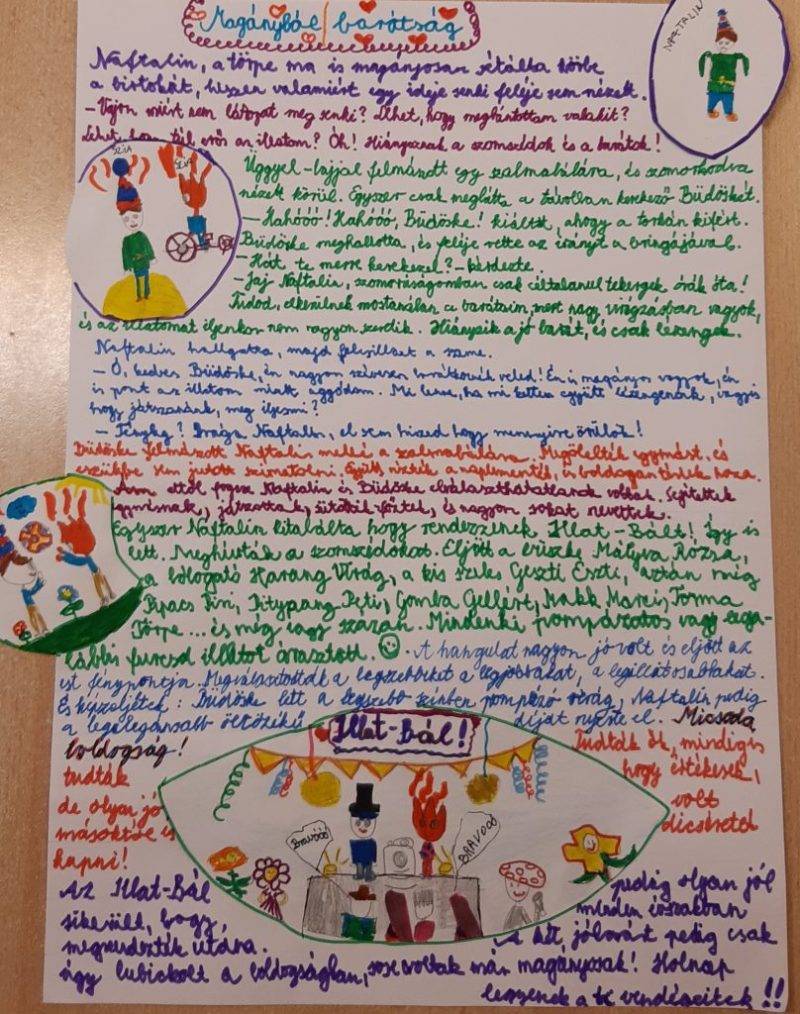 Magányból barátság
NAFTALIN
Naftalin, a törpe ma is magányosan sétálta körbe
a birtokát, hiszen valamiért egy ideje senki feléje sem nézett.
- Vajon miért nem látogat meg senki? Lehet, hogy megbántottam valakit?
Lehet, hogy túl erős az illatom? Óh! Hiányoznak a szomszédok és a barátok!
SZIA
SZIA
Üggyel-bajjal felmászott egy szalmabálára, és szomorkodva
nézett körül. Egyszer csak meglátta a távolban kerekező Büdöskét.
- Hahóóó! Hahóóó, Büdöske! kiáltott, ahogy a torkán kifért.
Büdöske meghallotta, és felője vette az irányt a bringájával.
- Hát te merre kerekezel? - kérdezte.
- Jaj Naftalin, szomorúságomban csak céltalanul tekergek órák óta!
Tudod, elkerülnek mostanában a barátaim, mert nagy virágzásban vagyok,
és az illatomat ilyenkor nem nagyon szeretik. Hiányzik a jó barát, és csak lézengek.
Naftalin hallgatta, majd felcsillant a szeme.
- Ó, kedves Büdöske, én nagyon szívesen barátkoznék veled! Én is magányos vagyok, én
is pont az illatom miatt aggódom. Mi lenne, ha mi ketten együtt lézengenénk, vagyis
hogy játszanánk, meg ilyesmi?
- Tényleg? Drága Naftalin, el sem hiszed hogy mennyire örülök!
Büdöske felmászott Naftalin mellé a szalmabálára. Megölelték egymást, és
eszükbe sem jutott szimatolni. Együtt nézték a naplementét, és boldogan tértek haza.
Ám ettől fogva Naftalin és Büdöske elválaszthatatlanok voltak. Segítettek
egymásnak, játszottak, sütöttek-főztek, és nagyon sokat nevettek.
Egyszer Naftalin kitalálta hogy rendezzenek Illat-Bált! Így is
lett. Meghívták a szomszédokat. Eljött a büszke Mályva Rózsa,
a bólogató Harang Virág, a kis szeles Geszti Eszti, aztán még
Pipacs Piri, Pitypang Peti, Gomba Gellért, Makk Marci, Torma
Törpe ... és még vagy százan. Mindenki pompázatos vagy lega-
lábbis furcsa illatot árasztott. A hangulat nagyon jó volt és eljött az
est fénypontja. Megválasztották a legszebbeket a legjobbakat, a legillatosabbakat.
És képzeljétek: Büdöske lett a legszebb színben pompázó virág, Naftalin pedig
a legelegánsabb öltözékű díját nyerte el. Micsoda
boldogság!
Illat-Bál!
Tudták ők, mindigis
tudták hogy értékesek,
de olyan jó volt
másoktól is dicséretet
kapni!
Bravóóó
BRAVÓÓÓ
Az Illat-Bál pedig olyan jól
sikerült, hogy minden évszakban
megrendezték utána. A két jóbarát pedig csak
úgy lubickolt a boldogságban, sose voltak már magányosak! Holnap
legyenek a ti vendégeitek!!